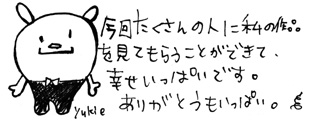 今回たくさんの人に私の作品
を見てもらうことができて、
幸せいっぱいです。
ありがとうもいっぱい。
yukie